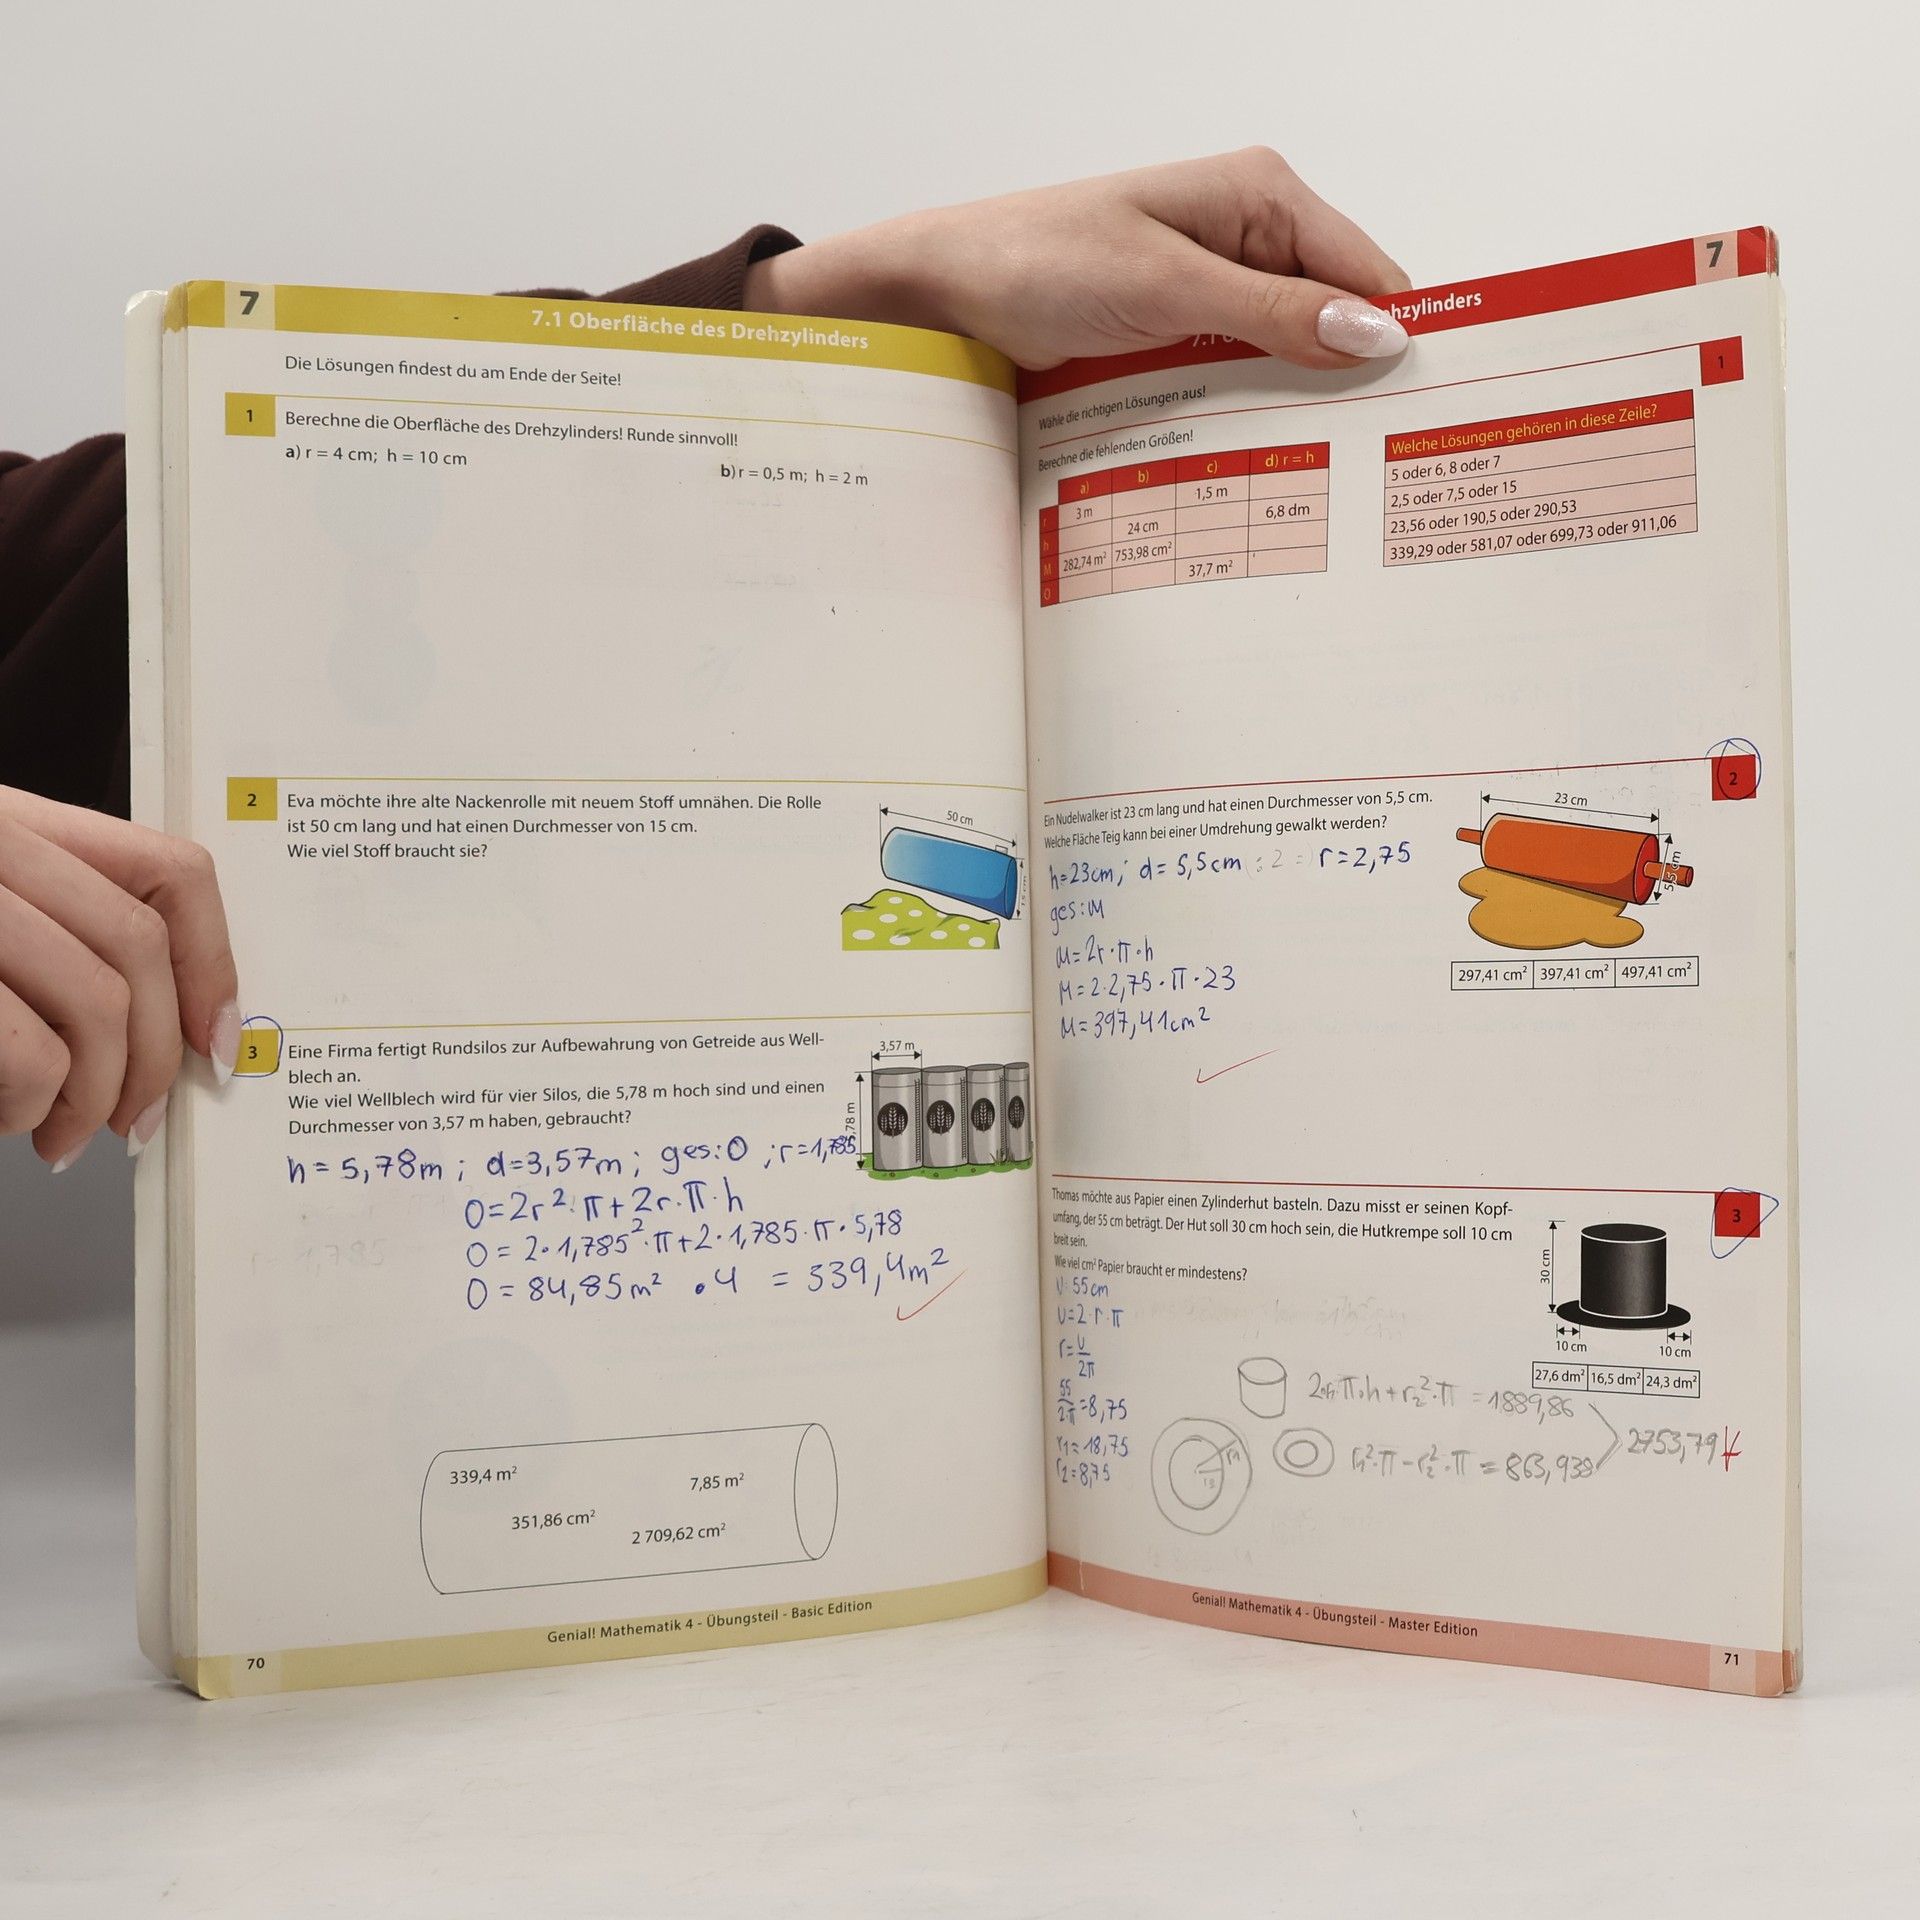 7
7.1 Oberfläche des Drehzylinders
Die Lösungen findest du am Ende der Seite!
1
Berechne die Oberfläche des Drehzylinders! Runde sinnvoll!
a) r = 4 cm; h = 10 cm
b) r = 0,5 m; h = 2 m
2
Eva möchte ihre alte Nackenrolle mit neuem Stoff umnähen. Die Rolle
ist 50 cm lang und hat einen Durchmesser von 15 cm.
Wie viel Stoff braucht sie?
50 cm
15 cm
3
Eine Firma fertigt Rundsilos zur Aufbewahrung von Getreide aus Well-
blech an.
Wie viel Wellblech wird für vier Silos, die 5,78 m hoch sind und einen
Durchmesser von 3,57 m haben, gebraucht?
3,57 m
5,78 m
h = 5,78m ; d=3,57m ; ges: O ; r=1,785
O=2r²·π+2r·π·h
O = 2·1,785²·π+2·1,785·π·5,78
O = 84,85m² ·4 = 339,4m²
339,4 m²
7,85 m²
351,86 cm²
2 709,62 cm²
Genial! Mathematik 4 - Übungsteil - Basic Edition
70
7
hzylinders
Wähle die richtigen Lösungen aus!
1
Berechne die fehlenden Größen!
a) b) c) d) r = h
r 3 m 1,5 m
h 24 cm 6,8 dm
M 282,74 m² 753,98 cm²
O 37,7 m²
Welche Lösungen gehören in diese Zeile?
5 oder 6, 8 oder 7
2,5 oder 7,5 oder 15
23,56 oder 190,5 oder 290,53
339,29 oder 581,07 oder 699,73 oder 911,06
2
Ein Nudelwalker ist 23 cm lang und hat einen Durchmesser von 5,5 cm.
Welche Fläche Teig kann bei einer Umdrehung gewalkt werden?
23 cm
5,5 cm
h=23cm; d= 5,5cm (:2 =) r=2,75
ges: M
M=2r·π·h
M=2·2,75·π·23
M=397,41cm²
297,41 cm² 397,41 cm² 497,41 cm²
3
Thomas möchte aus Papier einen Zylinderhut basteln. Dazu misst er seinen Kopf-
umfang, der 55 cm beträgt. Der Hut soll 30 cm hoch sein, die Hutkrempe soll 10 cm
breit sein.
Wie viel cm² Papier braucht er mindestens?
30 cm
10 cm
10 cm
27,6 dm² 16,5 dm² 24,3 dm²
U: 55cm
U=2·r·π
r=U/2π
55/2π=8,75
r1=18,75
r2=8,75
r1
r2
π·h+r2²·π =1889,86
r1²·π-r2²·π =863,938
2753,79
Genial! Mathematik 4 - Übungsteil - Master Edition
71